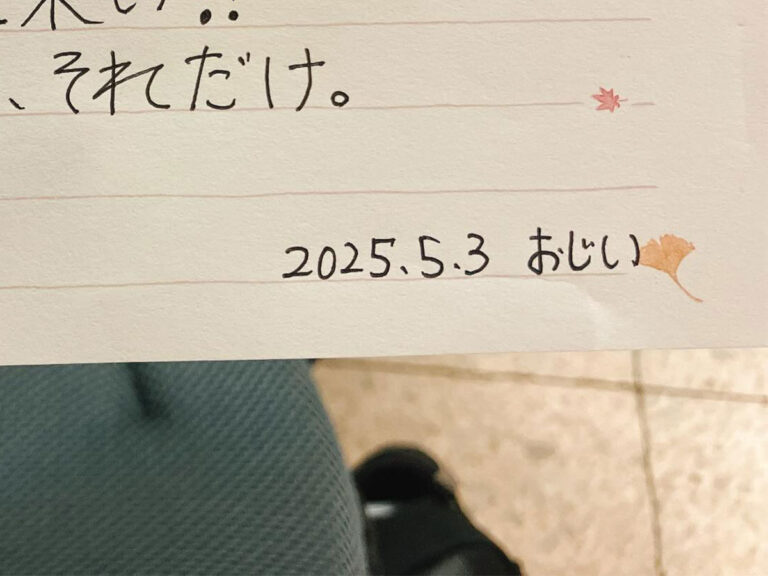 、それだけ。
2025.5.3 おじい